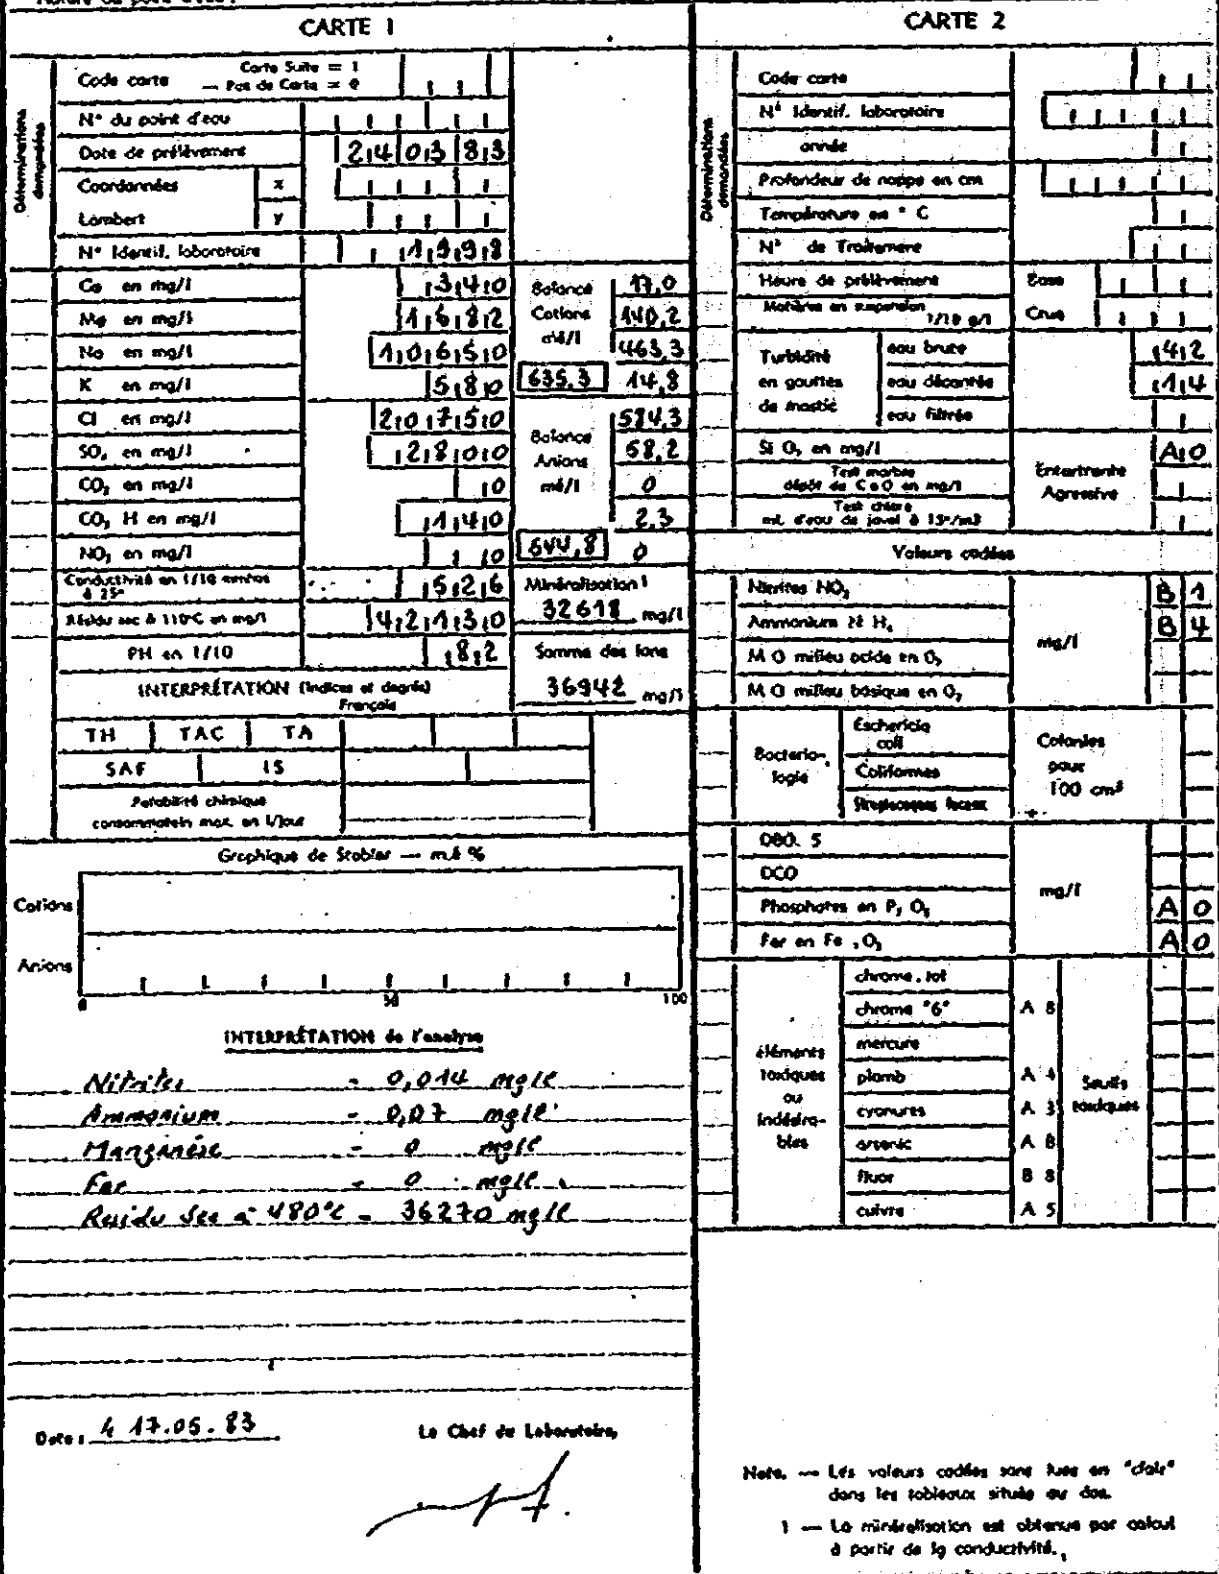 CARTE 1
Code carte Carte Suite = 1
— Pas de Carte = 0
Déterminations demandées
N° du point d'eau
Date de prélèvement 24 03 83
Coordonnées x
Lambert y
N° Identif. laboratoire 1998
Ca en mg/l 340
Mg en mg/l 1682
Na en mg/l 10650
K en mg/l 580
Cl en mg/l 20750
SO₄ en mg/l 2800
CO₃ en mg/l 0
CO₃ H en mg/l 140
NO₃ en mg/l 0
Conductivité en 1/10 mmhos à 25° 526
Résidu sec à 110°C en mg/l 42130
PH en 1/10 82
Balance Cations mé/l
17,0
140,2
463,3
635,3 14,8
Balance Anions mé/l
584,3
58,2
0
2,3
644,8 0
Minéralisation 1
32618 mg/l
Somme des Ions
36942 mg/l
INTERPRÉTATION (Indices et degrés)
Français
TH TAC TA
SAF IS
Potabilité chimique
consommation max. en l/jour
Graphique de Stabler — m.é %
Cations
Anions
0 50 100
INTERPRÉTATION de l'analyse
Nitrites = 0,014 mg/l
Ammonium = 0,07 mg/l
Manganèse = 0 mg/l
Fer = 0 mg/l
Residu Sec a 480°C = 36270 mg/l
Date : 17.05.83
Le Chef du Laboratoire,
CARTE 2
Déterminations demandées
Code carte
N° Identif. laboratoire
année
Profondeur de nappe en cm
Température en ° C
N° de Traitement
Heure de prélèvement Base
Matières en suspension 1/10 g/l Crue
Turbidité en gouttes de mastic
eau brute 42
eau décantée 14
eau filtrée
Si O₂ en mg/l A0
Test marbre
dépôt de CaO en mg/l
Entartrante
Agressive
Test chlore
ml. d'eau de javel à 15°/m3
Valeurs codées
Nitrites NO₂ B 1
Ammonium N H₄ B 4
M O milieu acide en O₂
M O milieu basique en O₂
mg/l
Bactériologie
Eschericia coli
Coliformes
Streptocoques fécaux
Colonies pour 100 cm³
DBO. 5
DCO
Phosphates en P₂ O₅ A 0
Fer en Fe₂O₃ A 0
mg/l
éléments toxiques ou indésirables
chrome.tot
chrome "6" A 8
mercure
plomb A 4
cyanures A 3
arsenic A 8
fluor B 8
cuivre A 5
Seuils toxiques
Note. — Les valeurs codées sont lues en "clair"
dans les tableaux située au dos.
1 — La minéralisation est obtenue par calcul
à partir de la conductivité.